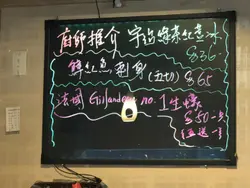 廚師推介 宇治綠茶紅豆冰
$36
鱆紅魚刺身 (五切) $65
法國 Gillardeau no.1 生蠔
$50一隻